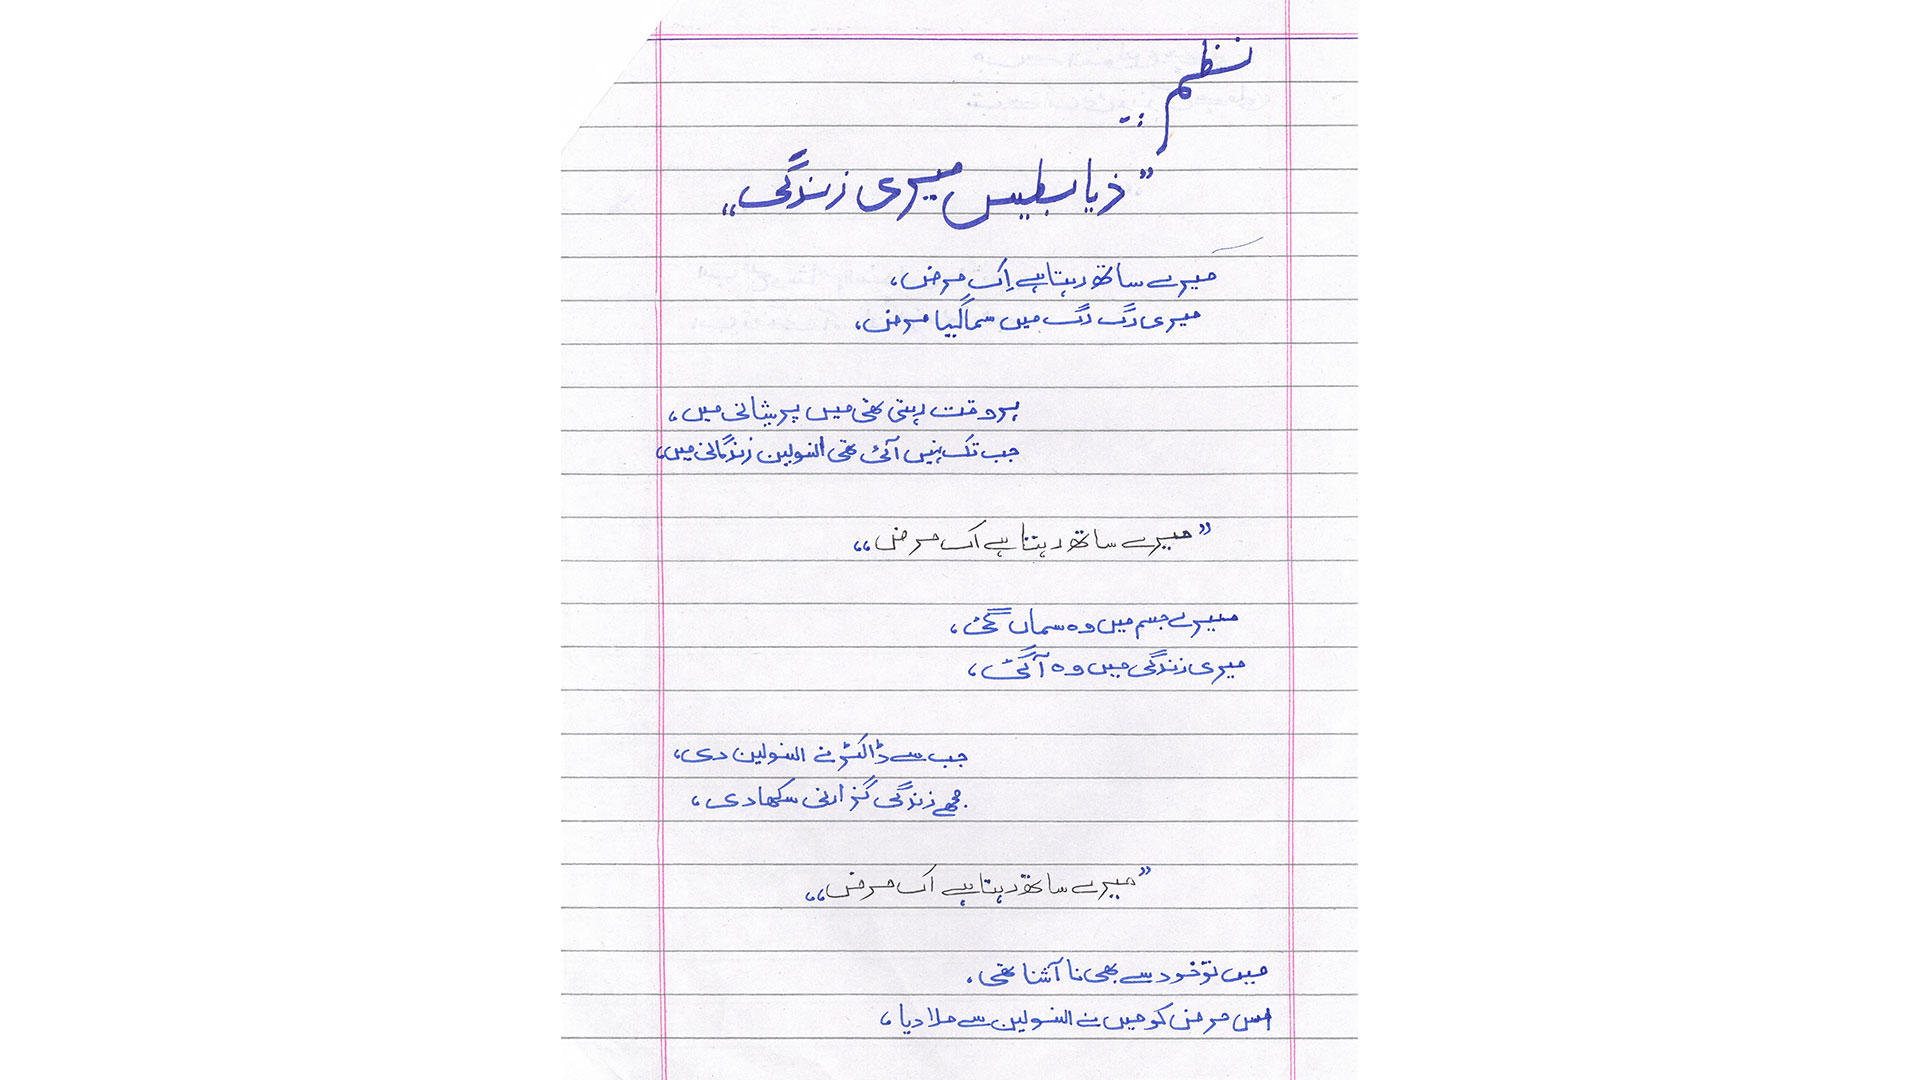 نظم :-
”ذیابطیس میری زندگی“
میرے ساتھ رہتا ہے اِک مرض،
میری رگ رگ میں سما گیا مرض،
ہر وقت رہتی تھی میں پریشانی میں،
جب تک نہیں آئی تھی انسولین زندگانی میں،
”میرے ساتھ رہتا ہے اک مرض“
میرے جسم میں وہ سماں گئی،
میری زندگی میں وہ آ گئی،
جب سے ڈاکٹر نے انسولین دی،
مجھے زندگی گزارنی سکھا دی،
”میرے ساتھ رہتا ہے اک مرض“
میں تو خود سے بھی نا آشنا تھی،
اس مرض کو میں نے انسولین سے ملا دیا،